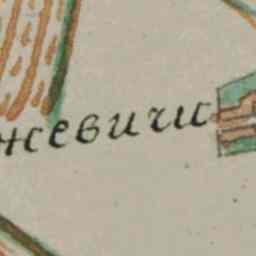 жевичи